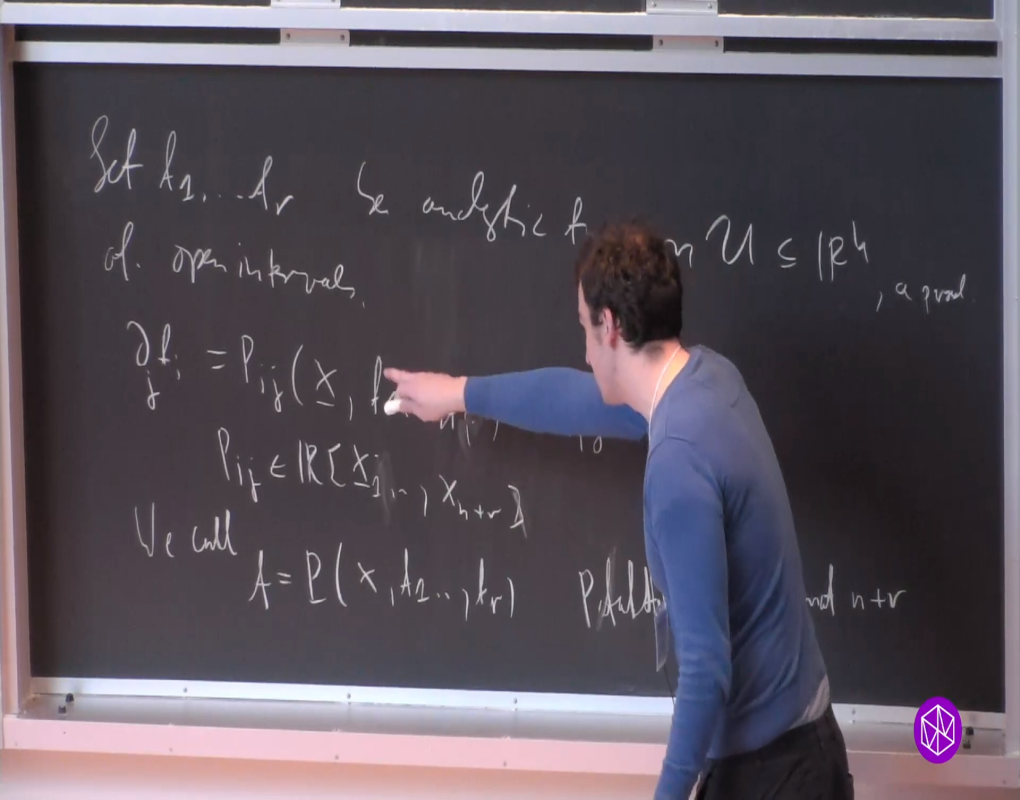 Let f₁,...fᵣ be analytic f n U ⊆ ℝⁿ, a prod.
of. open intervals.
∂ⱼfᵢ = Pᵢⱼ(x, f
Pᵢⱼ ∈ ℝ[x₁.., xₙ₊ᵣ]
We call
f = P(x, f₁.., fᵣ) n+r